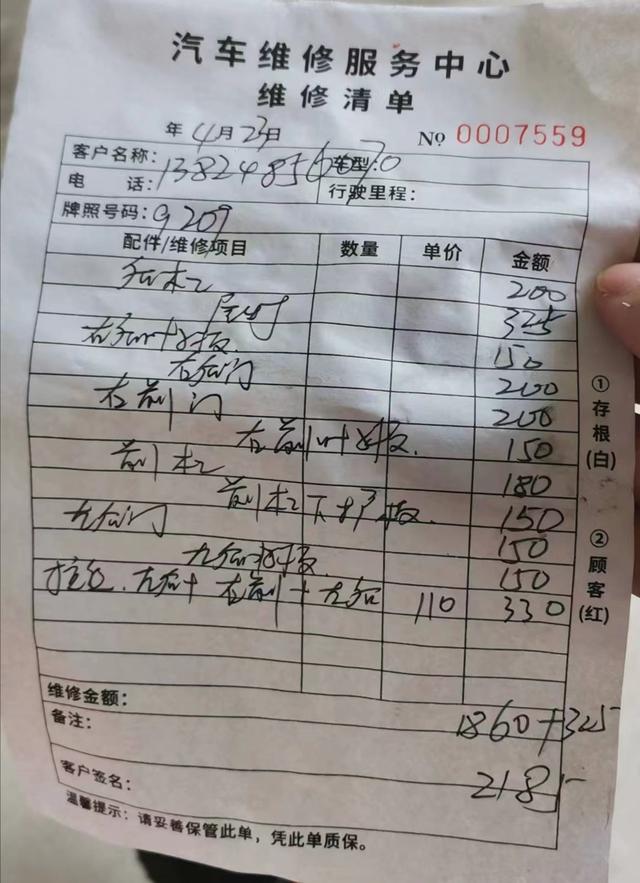 汽车维修服务中心
维修清单
年4月23日 No 0007559
客户名称: 车型:
电 话: 行驶里程:
牌照号码: 9209
配件/维修项目 数量 单价 金额
后杠 200
尾灯 325
右后叶子板 150
右后门 200
右前门 200
右前叶子板. 150
前杠 180
前杠下护板. 150
左后门 150
左后叶子板. 150
左后+右前+左后 110 330
①存根(白)
②顾客(红)
维修金额: 1860+325
备注:
2185
客户签名:
温馨提示: 请妥善保管此单，凭此单质保。